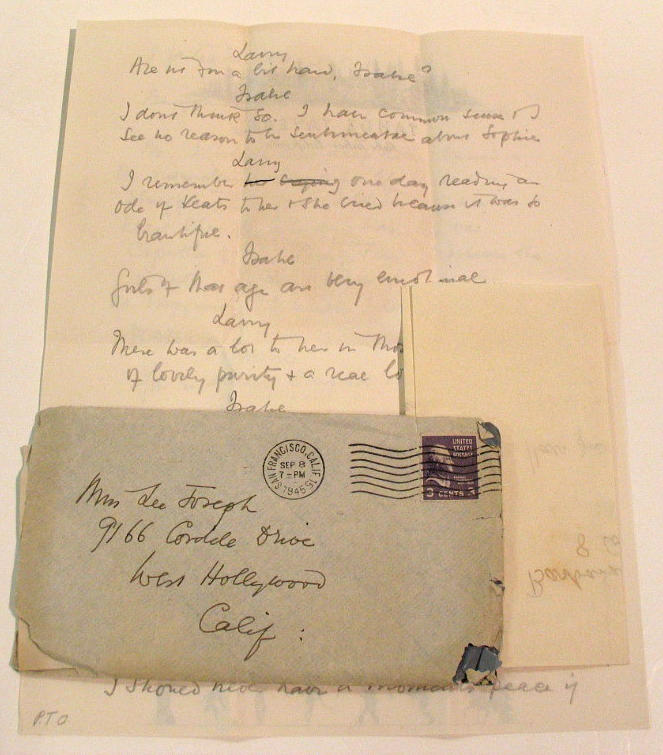 Larry
Are not you a bit hard, Isabel?
Isabel
I don't think so. I have common sense & I
see no reason to be sentimental about Sophie
Larry
I remember her saying one day reading an
ode of Keats to her & she cried because it was so
beautiful.
Isabel
Girls of that age are very emotional
Larry
There was a lot to her in thos
of lovely purity & a real lo
Isabel
SAN FRANCISCO, CALIF. 15
SEP 8
7-PM
1945
UNITED
STATES
POSTAGE
3 CENTS 3
Miss Lee Joseph
9166 Cordell Drive
West Hollywood
Calif:
I should never have a moments peace if
P.T.O